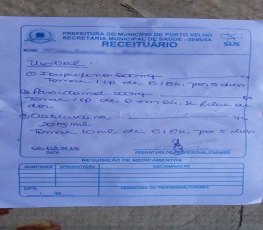 PREFEITURA DO MUNICÍPIO DE PORTO VELHO
SECRETARIA MUNICIPAL DE SAÚDE - SEMUSA
RECEITUÁRIO
SUS
NOME:
Uso oral
① Ibuprofeno 600mg
Tomar 1 cp de 8/8h, por 3 dias
② Paracetamol 500mg
Tomar 1 cp de 6/6h, se febre ou
dor
③
50mg/ml
Tomar 10ml de 8/8h, por 5 dias
DATA
ASSINATURA DO PROFISSIONAL/CARIMBO
REQUISIÇÃO DE MEDICAMENTOS
QUANTIDADE
APRESENTAÇÃO
DISCRIMINAÇÃO
DATA
ASSINATURA DO PROFISSIONAL/CARIMBO